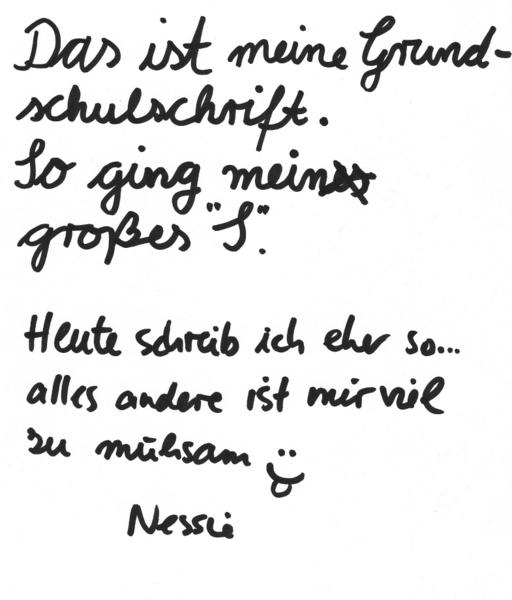 Das ist meine Grund-
schulschrift.
So ging mein
großes "S".
Heute schreib ich eher so...
alles andere ist mir viel
zu mühsam
Nessie